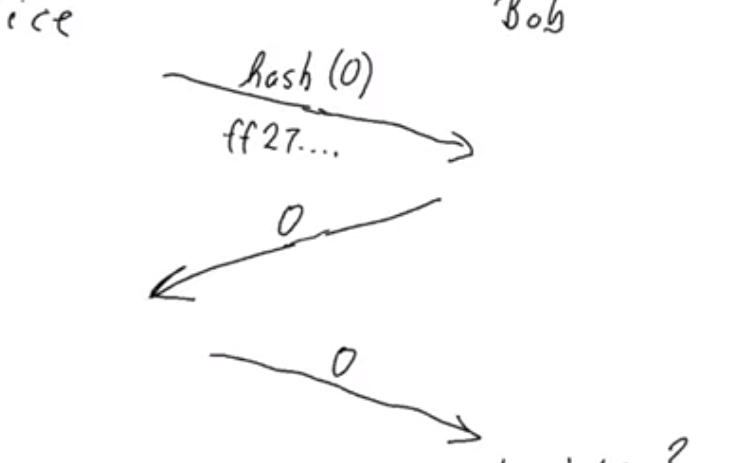 ice Bob
hash (0)
ff27....
0
0
?